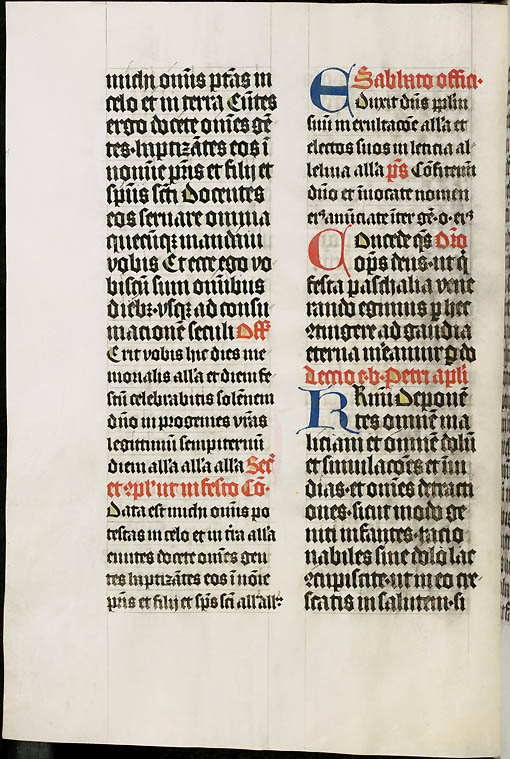 michi om̄is ptās in
celo et in terra Eūtes
ergo docete om̄es gē
tes·baptizātes eos ī
nomīe pr̄is et filij et
sp̄us sc̄ti Docentes
eos seruare omnia
quecūqꝫ mandaui
vobis Et ecce ego vo
biscū sum om̄ibus
diebꝫ·vsqꝫ ad consū
mationē seculi Off̄
Erit vobis hic dies me
morialis all'a et diem fe
stū celebrabitis solēnem
dn̄o in progenies vr̄as
legittimum sempiternū
diem all'a all'a all'a Sec̄
et 9pl' ut in festo Cō·
Data est michi om̄is po
testas in celo et in tr̄a all'a
eūntes docete om̄es gen
tes baptizātes eos ī noīe
pr̄is et filij et sp̄s sc̄i all'all'·
Sabbato offici·
Eduxit dn̄s ppl'm
suū in exultacōe all'a et
electos suos in leticia al
leluia all'a p̄s Cōfitemī
dn̄o et īuocate nomen
ei9 anūciate īter gē·o·ei9
Concede qs̄ Orō
op̄s deus·ut q̄
festa paschalia vene
rando egimus p hec
9tingere ad gaudia
eterna meamur p do
Leccio·e·b·Petri apl'i
Krm̄i Deponē
tes omnem ma
liciam et omnē dolū
et simulacōes et īui
dias·et om̄es detracti
ones·sicut modo ge
niti infantes·racio
nabiles sine dolo lac
9cupiscite·ut in eo cre
scatis in salutem·si